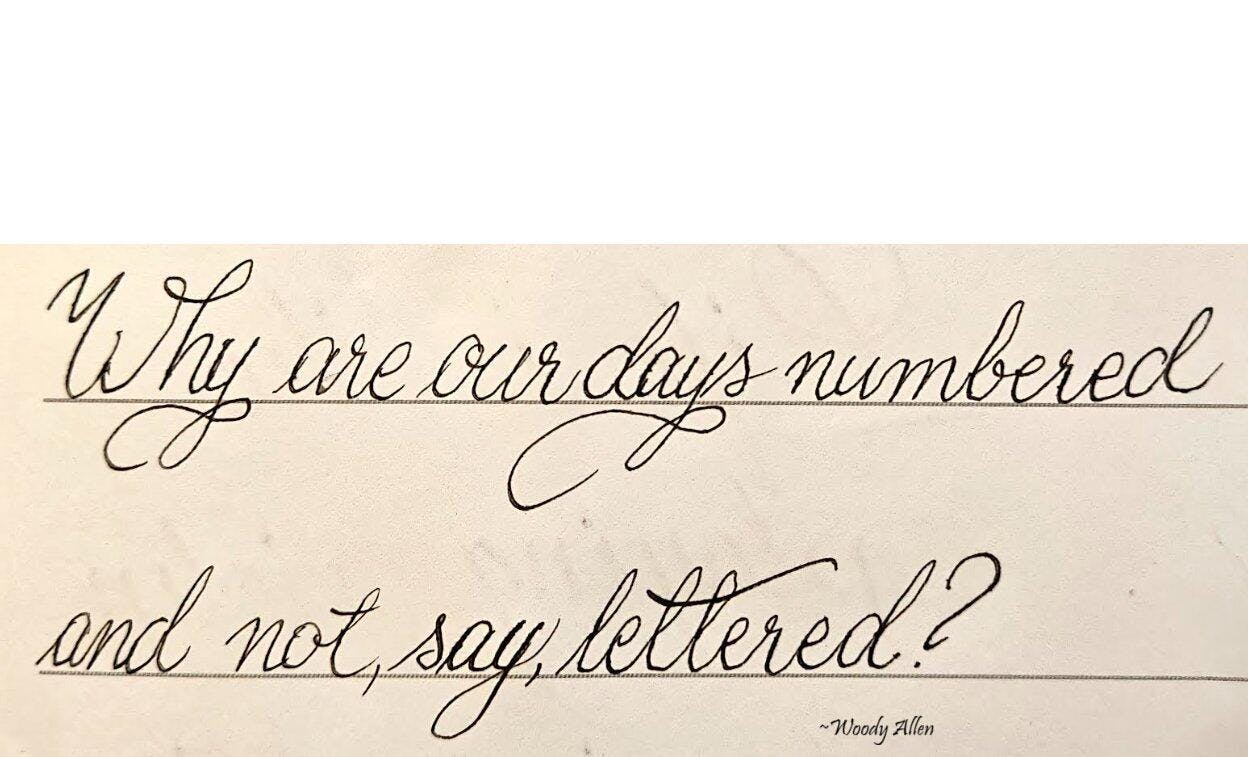 Why are our days numbered
and not, say, lettered?
~Woody Allen